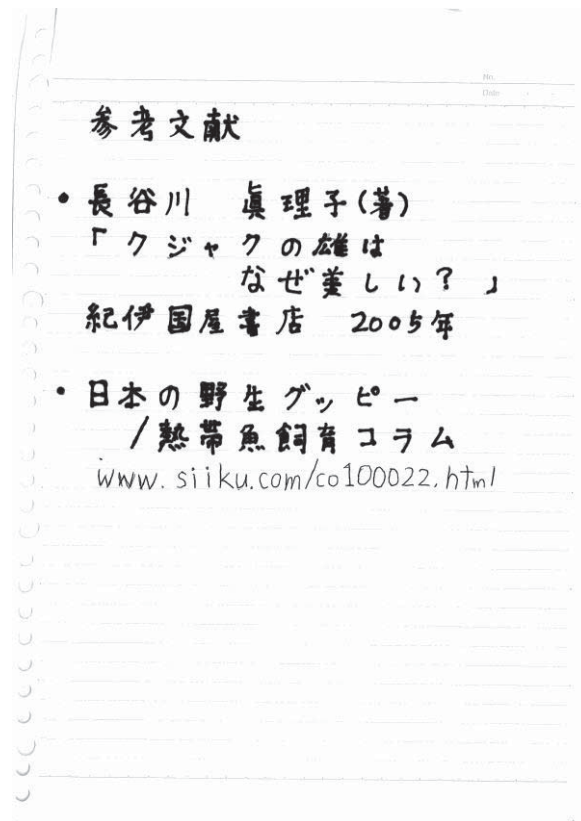 No.
Date
参考文献
・長谷川 眞理子(著)
「クジャクの雄は
なぜ美しい?」
紀伊国屋書店 2005年
・日本の野生グッピー
/熱帯魚飼育コラム
www.siiku.com/co100022.html